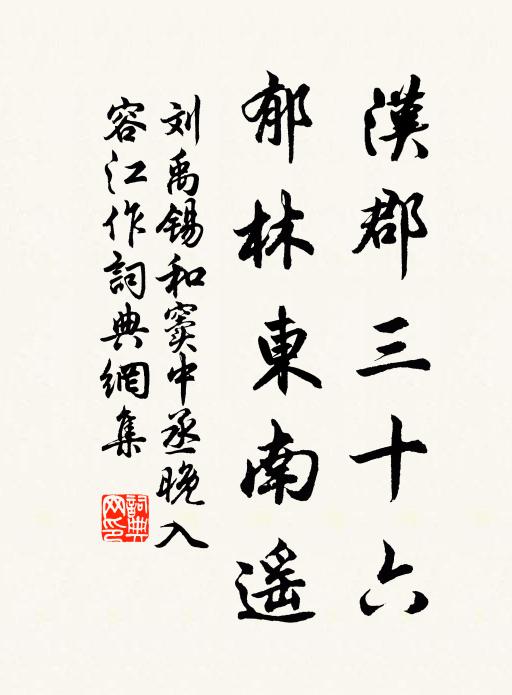 漢郡三十六
郁林東南遥
刘禹锡和窦中丞晚入
容江作詞典網集
詞典
网印